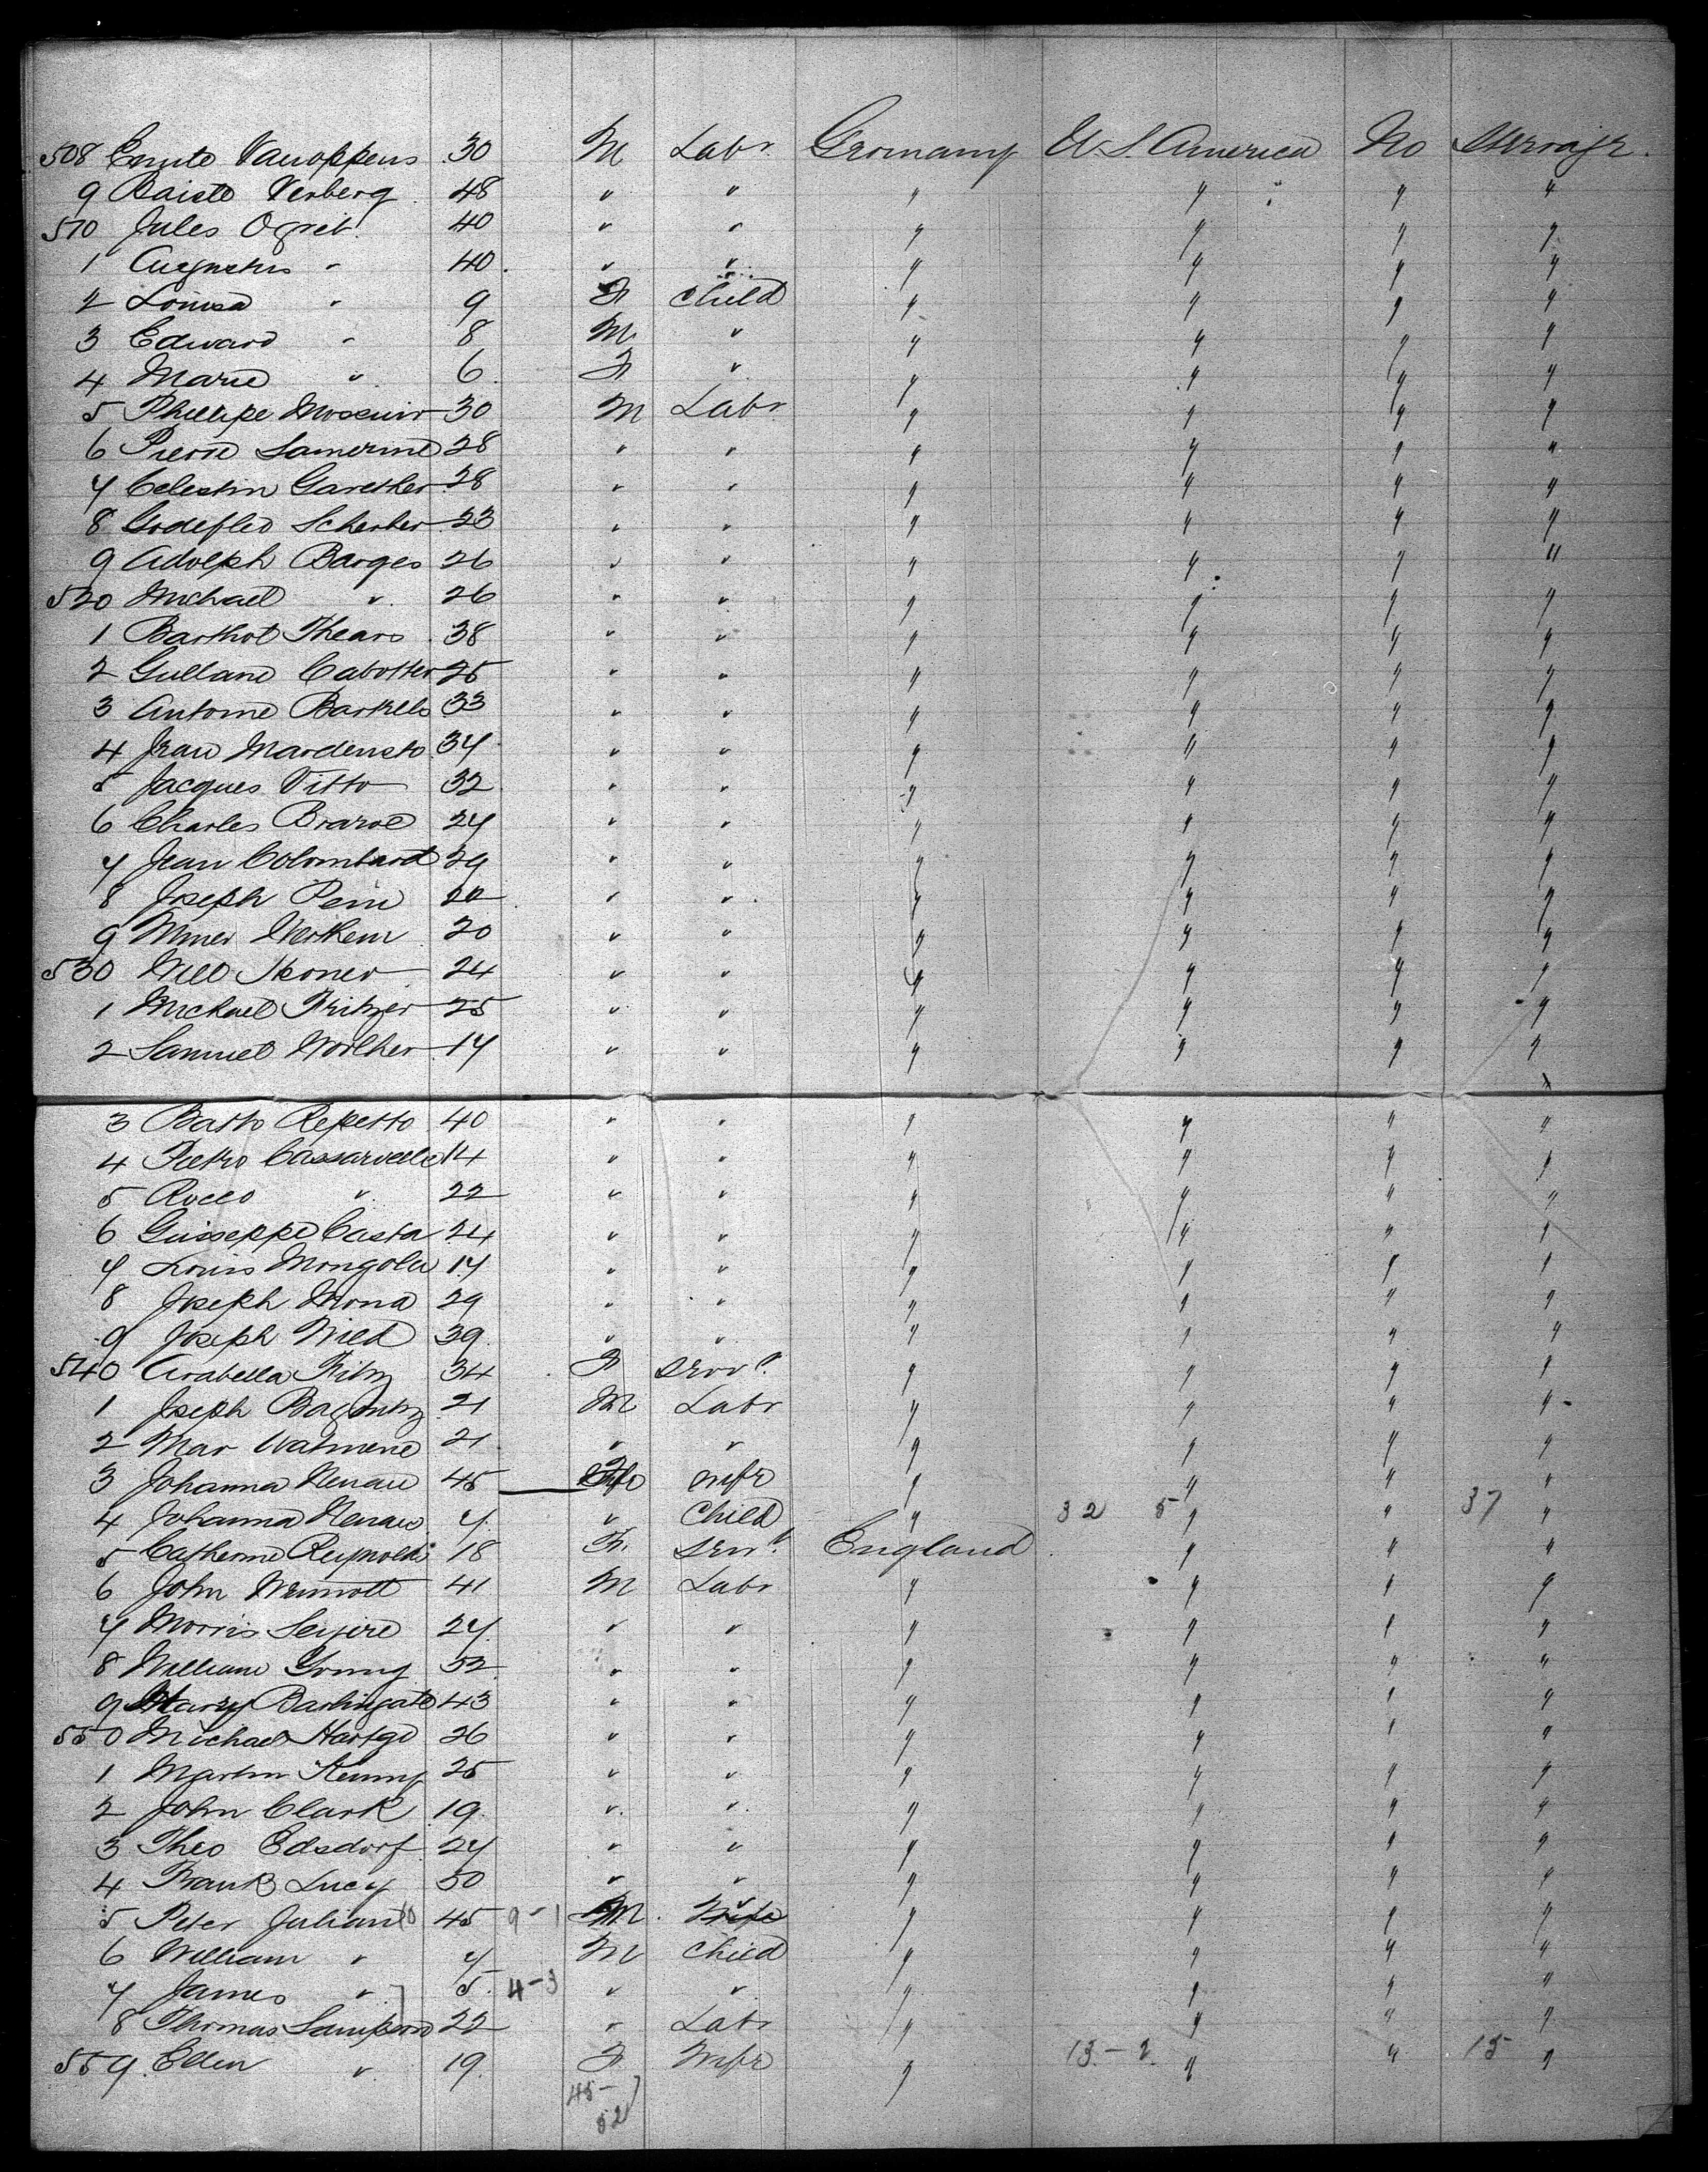 508 Ernste Vanoppens 30 M Labr Germany U. S. America No Steerage.
9 Baiste Verberg 48 " " " " " "
510 Jules Ogneb 40 " " " " " "
1 Augustus " 40 " " " " " "
2 Louisa " 9 F Child " " " "
3 Edward " 8 M " " " " "
4 Marie " 6 F " " " " "
5 Phillipe 30 M Labr " " " "
6 Pierre Lamerine 28 " " " " " "
7 Celestin Garether 28 " " " " " "
8 Godefled Scherber 23 " " " " " "
9 Adolph Barges 26 " " " " " "
520 Michael " 26 " " " " " "
1 Barthol Thears 38 " " " " " "
2 Gulland Cabotter 25 " " " " " "
3 Antoine Bartells 33 " " " " " "
4 Jean Mardensto 37 " " " " " "
5 Jacques Vitto 32 " " " " " "
6 Charles Brarol 27 " " " " " "
7 Jean Colombard 29 " " " " " "
8 Joseph Peru 20 " " " " " "
9 20 " " " " " "
530 Will Skoner 24 " " " " " "
1 Michael Fritzer 25 " " " " " "
2 Samuel Worlher 17 " " " " " "
3 Batto Repetto 40 " " " " " "
4 Pietro Cassarvelle 14 " " " " " "
5 Rocco " 22 " " " " " "
6 Guisseppe Casta 24 " " " " " "
7 Louis Mongola 17 " " " " " "
8 Joseph Mona 29 " " " " " "
9 Joseph Wild 39 " " " " " "
540 Arabella Fritz 34 F Servt " " " "
1 Joseph Bagentz 21 M Labr " " " "
2 Mar Watmene 21 " " " " " "
3 Johanna Nenau 45 F wife " " " "
4 Johanna Nenau 7 " Child " 32 5 " " 37 "
5 Catherine Reynolds 18 F. Servt England " " "
6 John Wrimott 41 M Labr " " " "
7 Morris Seyire 27 " " " " " "
8 William Young 52 " " " " " "
9 Harry Barlingate 43 " " " " " "
550 Michael Hartge 26 " " " " " "
1 Martin Kenny 25 " " " " " "
2 John Clark 19 " " " " " "
3 Theo Edsdorf 27 " " " " " "
4 Frank Lucy 50 " " " " " "
5 Peter Julian 45 9-1 M. Wife " " " "
6 William " 7 M Child " " " "
7 James " 5 4-3 " " " " " "
8 Thomas Sampson 22 " Labr " " " "
559 Ellen " 19 F Wife " 13-2 " " 15 "
45-
52